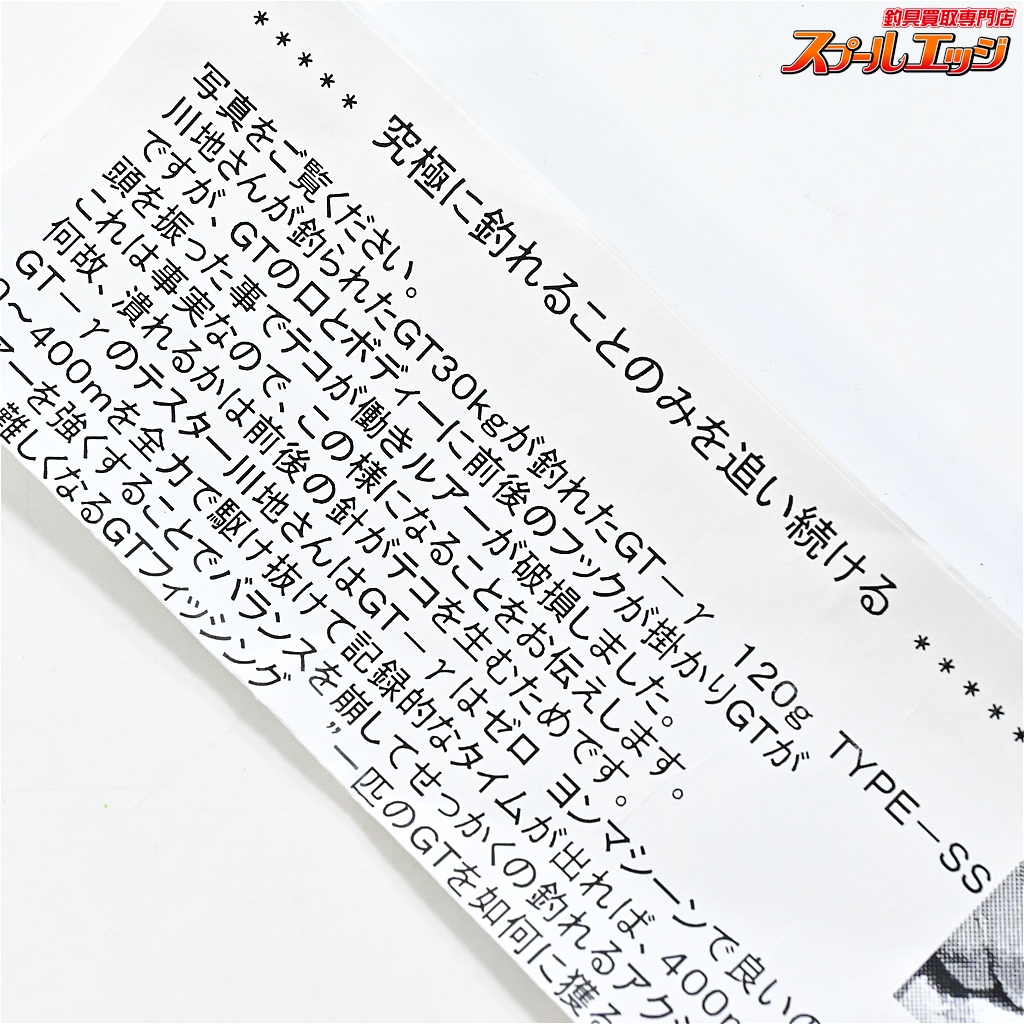 釣具買取専門店
スプールエッジ
***** 究極に釣れることのみを追い続ける *****
写真をご覧ください。
川地さんが釣られたGT30kgが釣れたGT－γ 120g TYPE－SS
ですが、GTの口とボディーに前後のフックが掛かりGTが
頭を振った事でテコが働きルアーが破損しました。
これは事実なので、この様になることをお伝えします。
何故、潰れるかは前後の針がテコを生むためです。
GT－γのテスター川地さんはGT－γはゼロ ヨンマシーンで良いの
0～400mを全力で駆け抜けて記録的なタイムが出れば、400m
アーを強くすることでバランスを崩してせっかくの釣れるアクシ
難しくなるGTフィッシング ”一匹のGTを如何に獲る